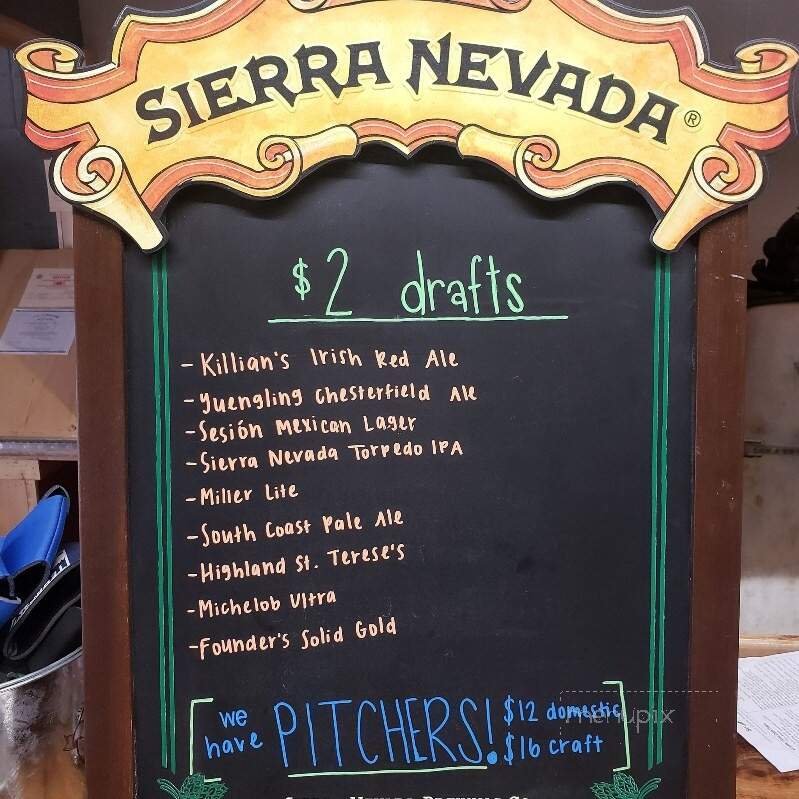 SIERRA NEVADA®
$2 drafts
- Killian's Irish Red Ale
- Yuengling Chesterfield Ale
- Sesión Mexican Lager
- Sierra Nevada Torpedo IPA
- Miller Lite
- South Coast Pale Ale
- Highland St. Terese's
- Michelob Ultra
- Founder's Solid Gold
we have PITCHERS! $12 domestic
$16 craft
menupix